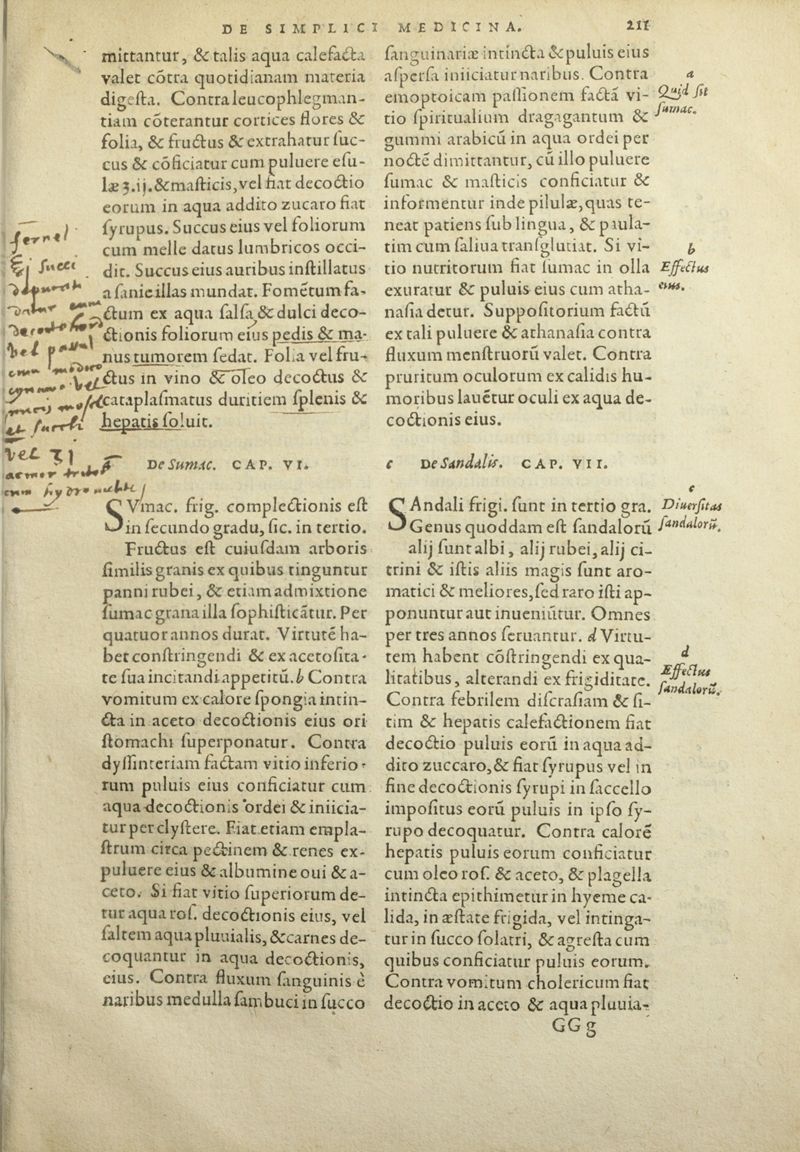 DE SIMPLICI MEDICINA. 211
mittantur, & talis aqua calefacta
valet cōtra quotidianam materia
digesta. Contra leucophlegman-
tiam cōterantur cortices flores &
folia, & fructus & extrahatur suc-
cus & cōficiatur cum puluere esu-
læ ʒ.ij.& masticis, vel fiat decoctio
eorum in aqua addito zucaro fiat
syrupus. Succus eius vel foliorum
cum melle datus lumbricos occi-
dit. Succus eius auribus instillatus
a sanie illas mundat. Fomētum fa-
ctum ex aqua salsa & dulci deco-
ctionis foliorum eius pedis & ma-
nus tumorem sedat. Folia vel fru-
ctus in vino & oleo decoctus &
cataplasmatus duritiem splenis &
hepatis soluit.
De Sumac. CAP. VI.
SVmac. frig. complectionis est
in secundo gradu, sic. in tertio.
Fructus est cuiusdam arboris
similis granis ex quibus tinguntur
panni rubei, & etiam admixtione
sumac grana illa sophisticātur. Per
quatuor annos durat. Virtutē ha-
bet constringendi & ex acetosita-
te sua incitandi appetitū. b Contra
vomitum ex calore spongia intin-
cta in aceto decoctionis eius ori
stomachi superponatur. Contra
dyssinteriam factam vitio inferio-
rum puluis eius conficiatur cum
aqua decoctionis ordei & iniicia-
tur per clystere. Fiat etiam empla-
strum circa pectinem & renes ex
puluere eius & albumine oui & a-
ceto. Si fiat vitio superiorum de-
tur aqua ros. decoctionis eius, vel
saltem aqua pluuialis, & carnes de-
coquantur in aqua decoctionis,
eius. Contra fluxum sanguinis è
naribus medulla sambuci in succo
sanguinariæ intincta & puluis eius
aspersa iniiciatur naribus. Contra
emoptoicam passionem factā vi-
tio spiritualium dragagantum &
gummi arabicū in aqua ordei per
noctē dimittantur, cū illo puluere
sumac & masticis conficiatur &
informentur inde pilulæ, quas te-
neat patiens sub lingua, & paula-
tim cum saliua transglutiat. Si vi-
tio nutritorum fiat sumac in olla
exuratur & puluis eius cum atha-
nasia detur. Suppositorium factū
ex tali puluere & athanasia contra
fluxum menstruorū valet. Contra
pruritum oculorum ex calidis hu-
moribus lauētur oculi ex aqua de-
coctionis eius.
c De Sandalis. CAP. VII.
SAndali frigi. sunt in tertio gra.
Genus quoddam est sandalorū
alij sunt albi, alij rubei, alij ci-
trini & istis aliis magis sunt aro-
matici & meliores, sed raro isti ap-
ponuntur aut inueniūtur. Omnes
per tres annos seruantur. d Virtu-
tem habent cōstringendi ex qua-
litatibus, alterandi ex frigiditate.
Contra febrilem discrasiam & si-
tim & hepatis calefactionem fiat
decoctio puluis eorū in aqua ad-
dito zuccaro, & fiat syrupus vel in
fine decoctionis syrupi in saccello
impositus eorū puluis in ipso sy-
rupo decoquatur. Contra calorē
hepatis puluis eorum conficiatur
cum oleo ros. & aceto, & plagella
intincta epithimetur in hyeme ca-
lida, in æstate frigida, vel intinga-
tur in succo solatri, & agresta cum
quibus conficiatur puluis eorum.
Contra vomitum cholericum fiat
decoctio in aceto & aqua pluuia-
GG g
a
Quid sit
sumac.
b
Effectus
eius.
c
Diuersitas
sandalorū.
d
Effectus
sandalorū.